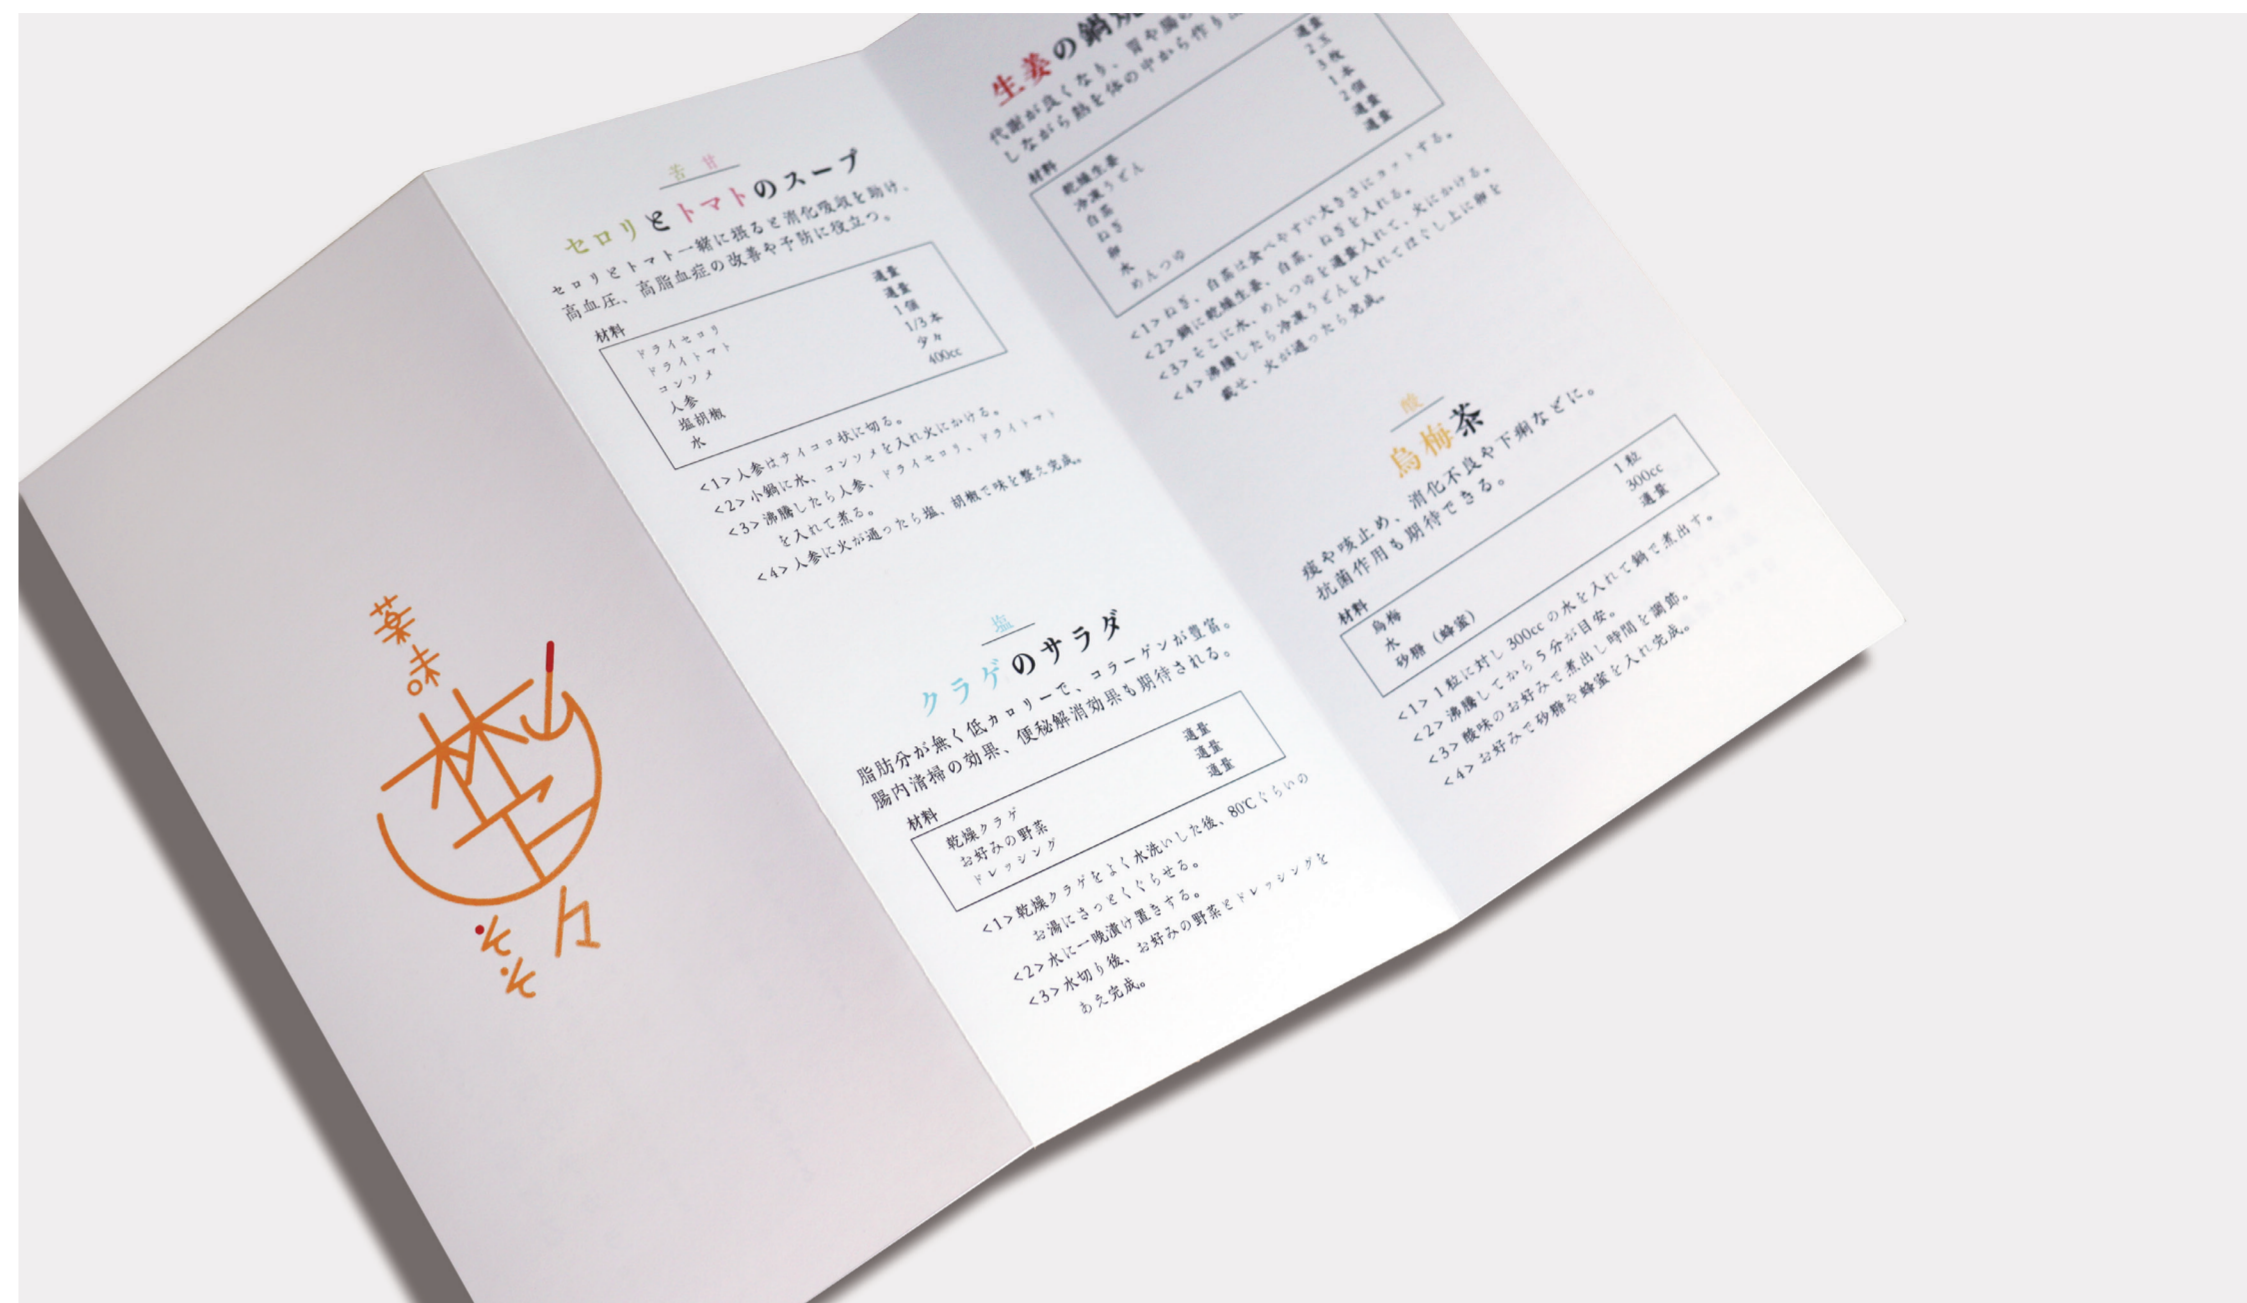 薬味
々
そそ
苦 甘
セロリとトマトのスープ
セロリとトマト一緒に摂ると消化吸収を助け、
高血圧、高脂血症の改善や予防に役立つ。
材料
ドライセロリ 適量
ドライトマト 適量
コンソメ 1個
人参 1/3本
塩胡椒 少々
水 400cc
<1>人参はサイコロ状に切る。
<2>小鍋に水、コンソメを入れ火にかける。
<3>沸騰したら人参、ドライセロリ、ドライトマト
を入れて煮る。
<4>人参に火が通ったら塩、胡椒で味を整え完成。
塩
クラゲのサラダ
脂肪分が無く低カロリーで、コラーゲンが豊富。
腸内清掃の効果、便秘解消効果も期待される。
材料
乾燥クラゲ 適量
お好みの野菜 適量
ドレッシング 適量
<1>乾燥クラゲをよく水洗いした後、80℃ぐらいの
お湯にさっとくぐらせる。
<2>水に一晩漬け置きする。
<3>水切り後、お好みの野菜とドレッシングを
あえ完成。
生姜の鍋焼
代謝が良くなり、胃や腸の
しながら熱を体の中から作り
材料
乾燥生姜 適量
冷凍うどん 2玉
白菜 3枚
ねぎ 1本
卵 2個
水 適量
めんつゆ 適量
<1>ねぎ、白菜は食べやすい大きさにカットする。
<2>鍋に乾燥生姜、白菜、ねぎを入れる。
<3>そこに水、めんつゆを適量入れて、火にかける。
<4>沸騰したら冷凍うどんを入れてほぐし上に卵を
載せ、火が通ったら完成。
酸
烏梅茶
痰や咳止め、消化不良や下痢などに。
抗菌作用も期待できる。
材料
烏梅 1粒
水 300cc
砂糖（蜂蜜） 適量
<1>1粒に対し300ccの水を入れて鍋で煮出す。
<2>沸騰してから5分が目安。
<3>酸味のお好みで煮出し時間を調節。
<4>お好みで砂糖や蜂蜜を入れ完成。